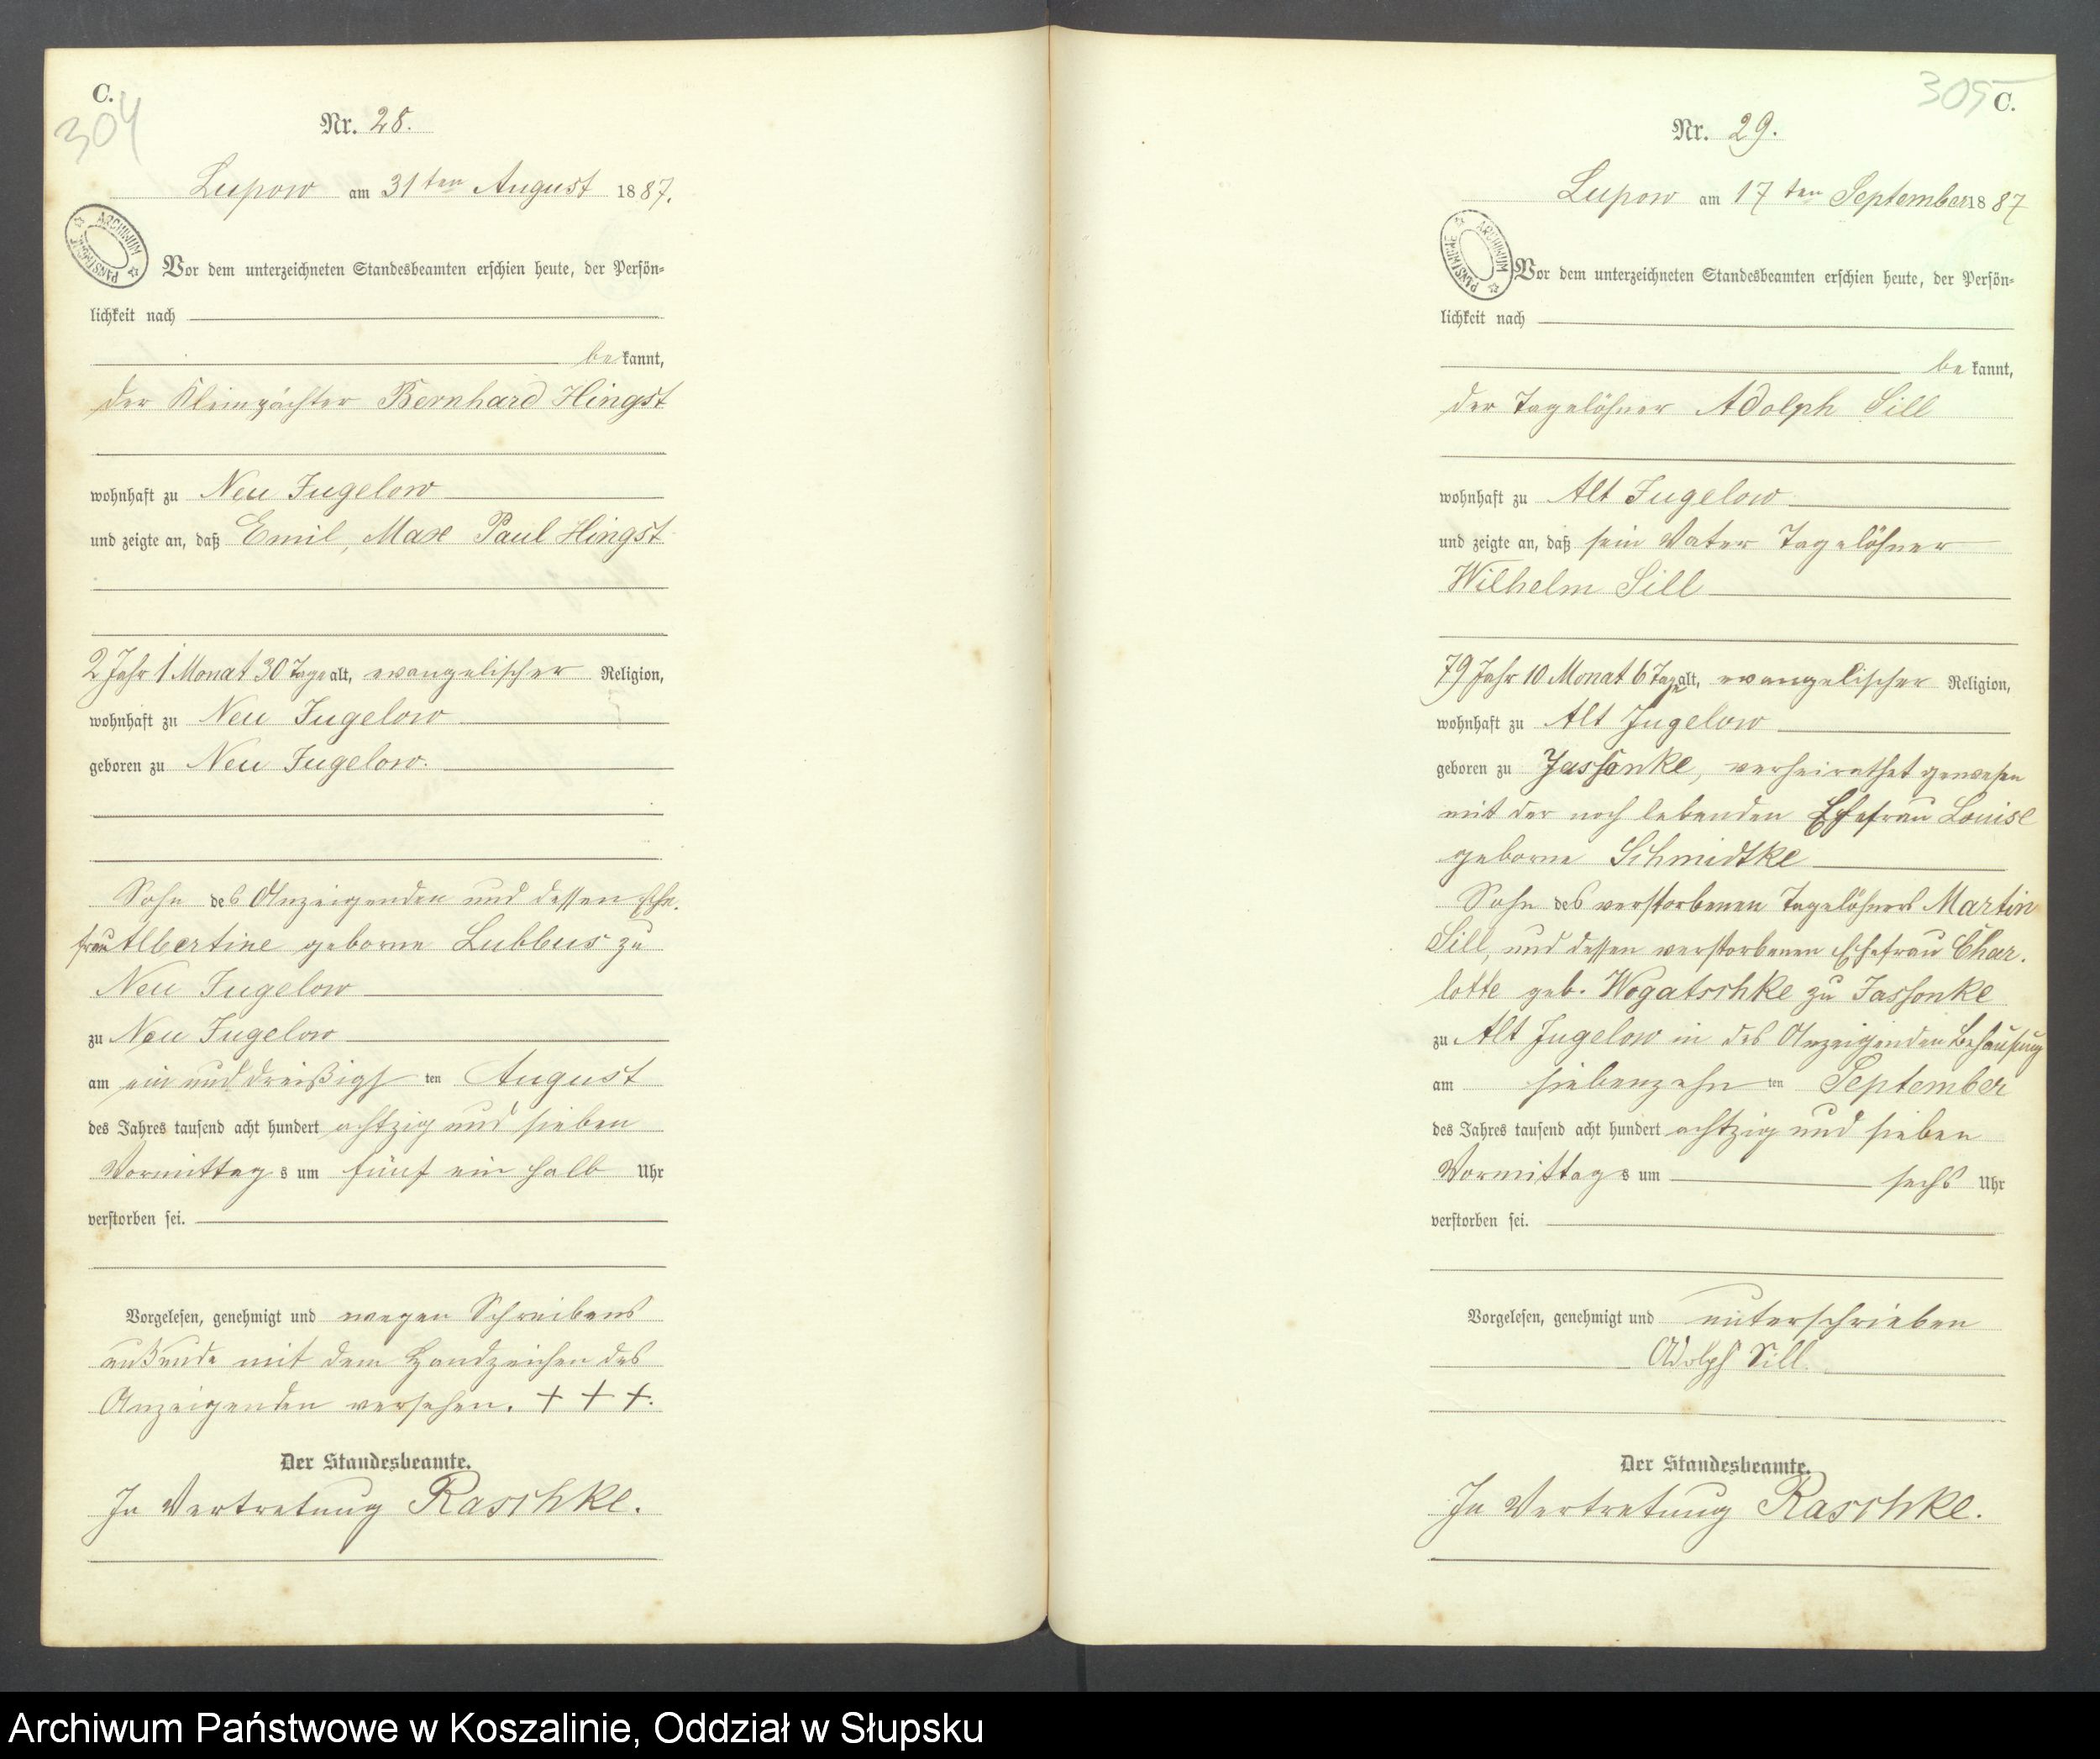 C.
304
Nr. 28.
Lupow am 31ten August 1887.
ARCHIWUM PAŃSTWOWE
Vor dem unterzeichneten Standesbeamten erschien heute, der Persön-
lichkeit nach
be kannt,
der Kleinpächter Bernhard Hingst
wohnhaft zu Neu Jugelow
und zeigte an, daß Emil, Max Paul Hingst
2 Jahr 1 Monat 30 Tage alt, evangelischer Religion,
wohnhaft zu Neu Jugelow
geboren zu Neu Jugelow.
Sohn des Anzeigenden und dessen Ehe-
frau Albertine geborne Lubbus zu
Neu Jugelow
zu Neu Jugelow
am ein und dreißigs ten August
des Jahres tausend acht hundert achtzig und sieben
Vormittag s um fünf ein halb Uhr
verstorben sei.
Vorgelesen, genehmigt und wegen Schreibens
unkunde mit dem Handzeichen des
Anzeigenden versehen. + + +.
Der Standesbeamte.
In Vertretung Raschke.
305
C.
Nr. 29.
Lupow am 17ten September 1887
ARCHIWUM PAŃSTWOWE
Vor dem unterzeichneten Standesbeamten erschien heute, der Persön-
lichkeit nach
be kannt,
der Tagelöhner Adolph Sill
wohnhaft zu Alt Jugelow
und zeigte an, daß sein Vater Tagelöhner
Wilhelm Sill
79 Jahr 10 Monat 6 Tage alt, evangelischer Religion,
wohnhaft zu Alt Jugelow
geboren zu Jassonke, verheirathet gewesen
mit der noch lebenden Ehefrau Louise
geborne Schmidtke
Sohn des verstorbenen Tagelöhners Martin
Sill, und dessen verstorbenen Ehefrau Char-
lotte geb. Wogatschke zu Jassonke
zu Alt Jugelow in des Anzeigenden Behausung
am siebenzehn ten September
des Jahres tausend acht hundert achtzig und sieben
Vormittag s um sechs Uhr
verstorben sei.
Vorgelesen, genehmigt und unterschrieben
Adolph Sill.
Der Standesbeamte.
In Vertretung Raschke.
Archiwum Państwowe w Koszalinie, Oddział w Słupsku